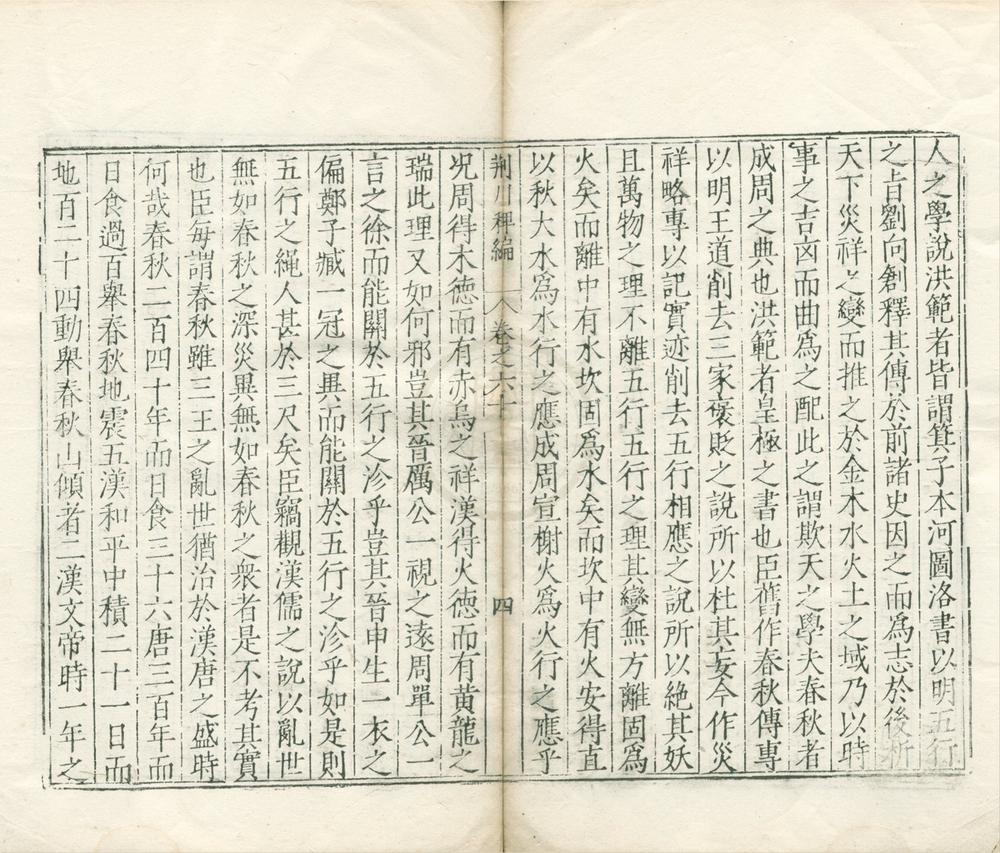 人之學說洪範者皆謂箕子本河圖洛書以明五行
之㫖劉向創釋其傳於前諸史因之而爲志於後析
天下災祥之變而推之於金木水火土之域乃以時
事之吉凶而曲爲之配此之謂欺天之學夫春秋者
成周之典也洪範者皇極之書也臣舊作春秋傳專
以明王道削去三家褒貶之說所以杜其妄今作災
祥略專以記實迹削去五行相應之說所以絶其妖
且萬物之理不離五行五行之理其變無方離固爲
火矣而離中有水坎固爲水矣而坎中有火安得直
以秋大水爲水行之應成周宣榭火爲火行之應乎
荆川稗編 卷之六十 四
况周得木德而有赤烏之祥漢得火德而有黄龍之
瑞此理又如何邪豈其晉厲公一視之遠周單公一
言之徐而能關於五行之沴乎豈其晉申生一衣之
偏鄭子臧一冠之異而能關於五行之沴乎如是則
五行之繩人甚於三尺矣臣竊觀漢儒之說以亂世
無如春秋之深災異無如春秋之衆者是不考其實
也臣每謂春秋雖三王之亂世猶治於漢唐之盛時
何哉春秋二百四十年而日食三十六唐三百年而
日食過百舉春秋地震五漢和平中積二十一日而
地百二十四動舉春秋山傾者二漢文帝時一年之